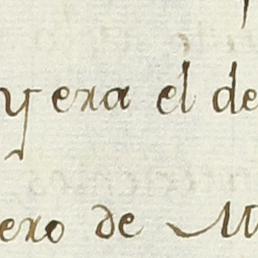 y era el de
ero de M